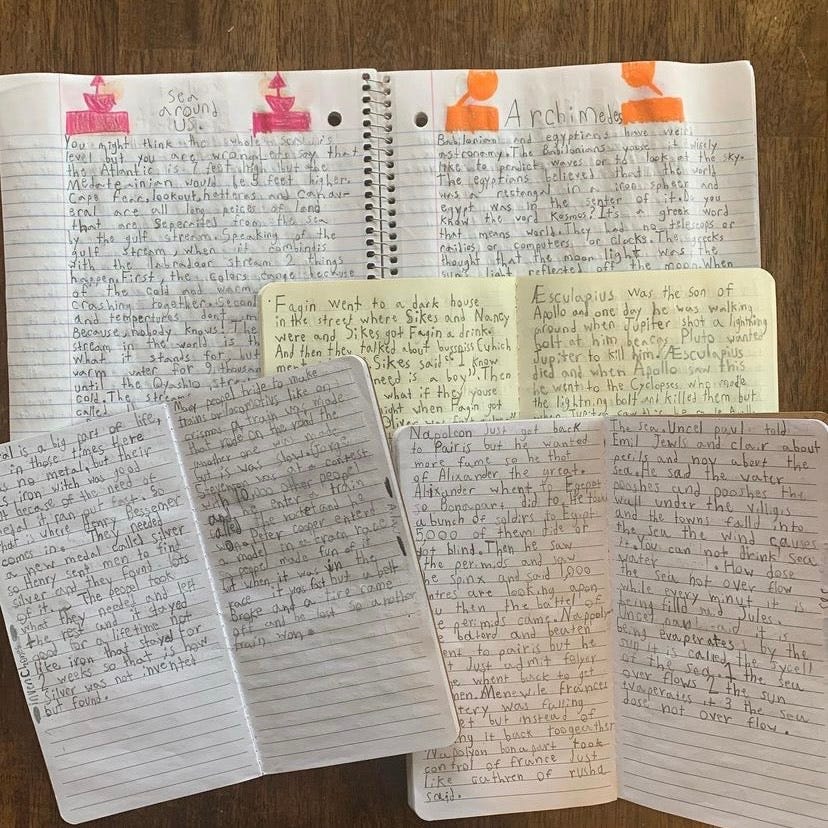 sea
around
us.
You might think the whole sea is
level but you are wrong lets say that
the Atlantic is 7 feet high but the
Medateinian would be 9 feet higher.
Cape Fear, lookout, hetteras and Canav-
eral are all long peices of land
that are seperaited from the sea
by the gulf stream. Speaking of the
gulf stream, when it combindis
with the labradoar stream 2 things
happen. First, the colors cange because
of the cold and warm
crashing together. Second
and tempertures dont
Because, nobody knows! The
stream in the world is th
what it stands for, but
warm water for 9 thousand
until the Oyashio strea
cold. The stream
called
Archimedes
Babilonian and egyptians have weird
astronomy. The Babilonians youse it wisely
like to predict waves or to look at the sky.
The egyptians believed that the world
was a rectangal in a iron spheer and
egypt was in the senter of it. Do you
know the word Kosmos? It's a greek word
that means world. They had no telescops or
raidios or computers or clocks. The greeks
thought that the moon light was the
sun's light reflected off the moon. When
Fagin went to a dark house
in the street where Sikes and Nancy
were and Sikes got Fagin a drink.
And then they talked about buyssiss (which
Sikes said "I know
need is a boy". Then
what if they youse
night when Fagin got
Æsculapius was the son of
Apollo and one day he was walking
around when Jupiter shot a lightning
bolt at him becaes Pluto wanted
Jupiter to kill him. Æsculapius
died and when Apollo saw this
he went to the Cyclopses who made
the lightning bolt and killed them but
al is a big part of life,
in those times there
s no metal, but their
s iron witch was good
t because of the need of
metal it ran out fast. So
that is where Henry Bessemer
comes in. They needed
a new medal called silver
so Henry sent men to find
silver and they found lots
of it. The peopel took
what they needed and left
the rest and it stayed
good for a lifetime not
like iron that stayed for
2 weeks so that is how
Silver was not invented
but found.
Many peopel tride to make
trains or locomotivs like on
crismas. A train was made
that rode on the road the
another one was made
but is was slow. Jorge
Stevenson was at a contest
and 10,000 other peopel
and he enter a train
called The rocket and he
won. Peter cooper entered
a model in a crain race
peopel made fun of it
but when it was in the
race it was fast but a belt
broke and a tire came
off and he lost so another
train won.
Napoleon just got back
to Pairis but he wanted
more fame so he thot
of Alixander the great.
Alixander whent to Egepet
so Bonapart did to. He took
a bunch of soldirs to Egipt
5,000 of them tide or
got blind. Then he saw
the permids and saw
he spinx and said 1,000
ntres are looking apon
u then the battel of
e permids came. Napoly
batord and beuten
ent to pairis but he
t Just admit falyer
he whent back to get
hen. Menewile frainces
tery was falling
et but instead of
ing it back toogeather
Napolyon bonapart took
control of france Just
like cathren of rusha
said.
The sea. Uncel paul told
Emil Jewls and clair about
perils and noy about the
sea. He sad the water
pooshes and pooshes the
wall under the villigis
and the towns falld into
the sea the wind causes
it. You can not drink sea
water. How dose
the sea not over flow
while every minut it is
being filld said Jules.
Uncel paul said it is
being evaperates by the
sun it is called the sycell
of the sea. 1 the sea
over flows 2 the sun
evaperates it 3 the sea
dose not over flow.